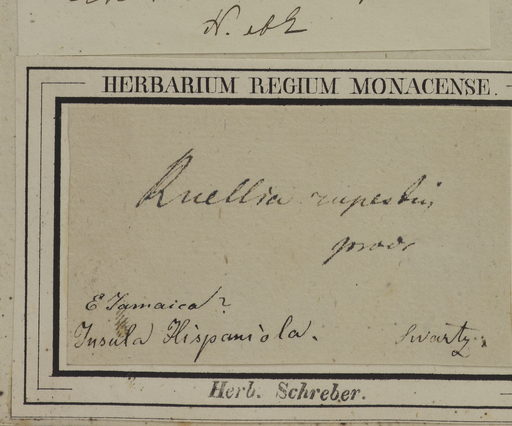 HERBARIUM REGIUM MONACENSE.
Ruellia rupestris,
prodr
E Jamaica?
Insula Hispaniola. Swartz.
Herb. Schreber.